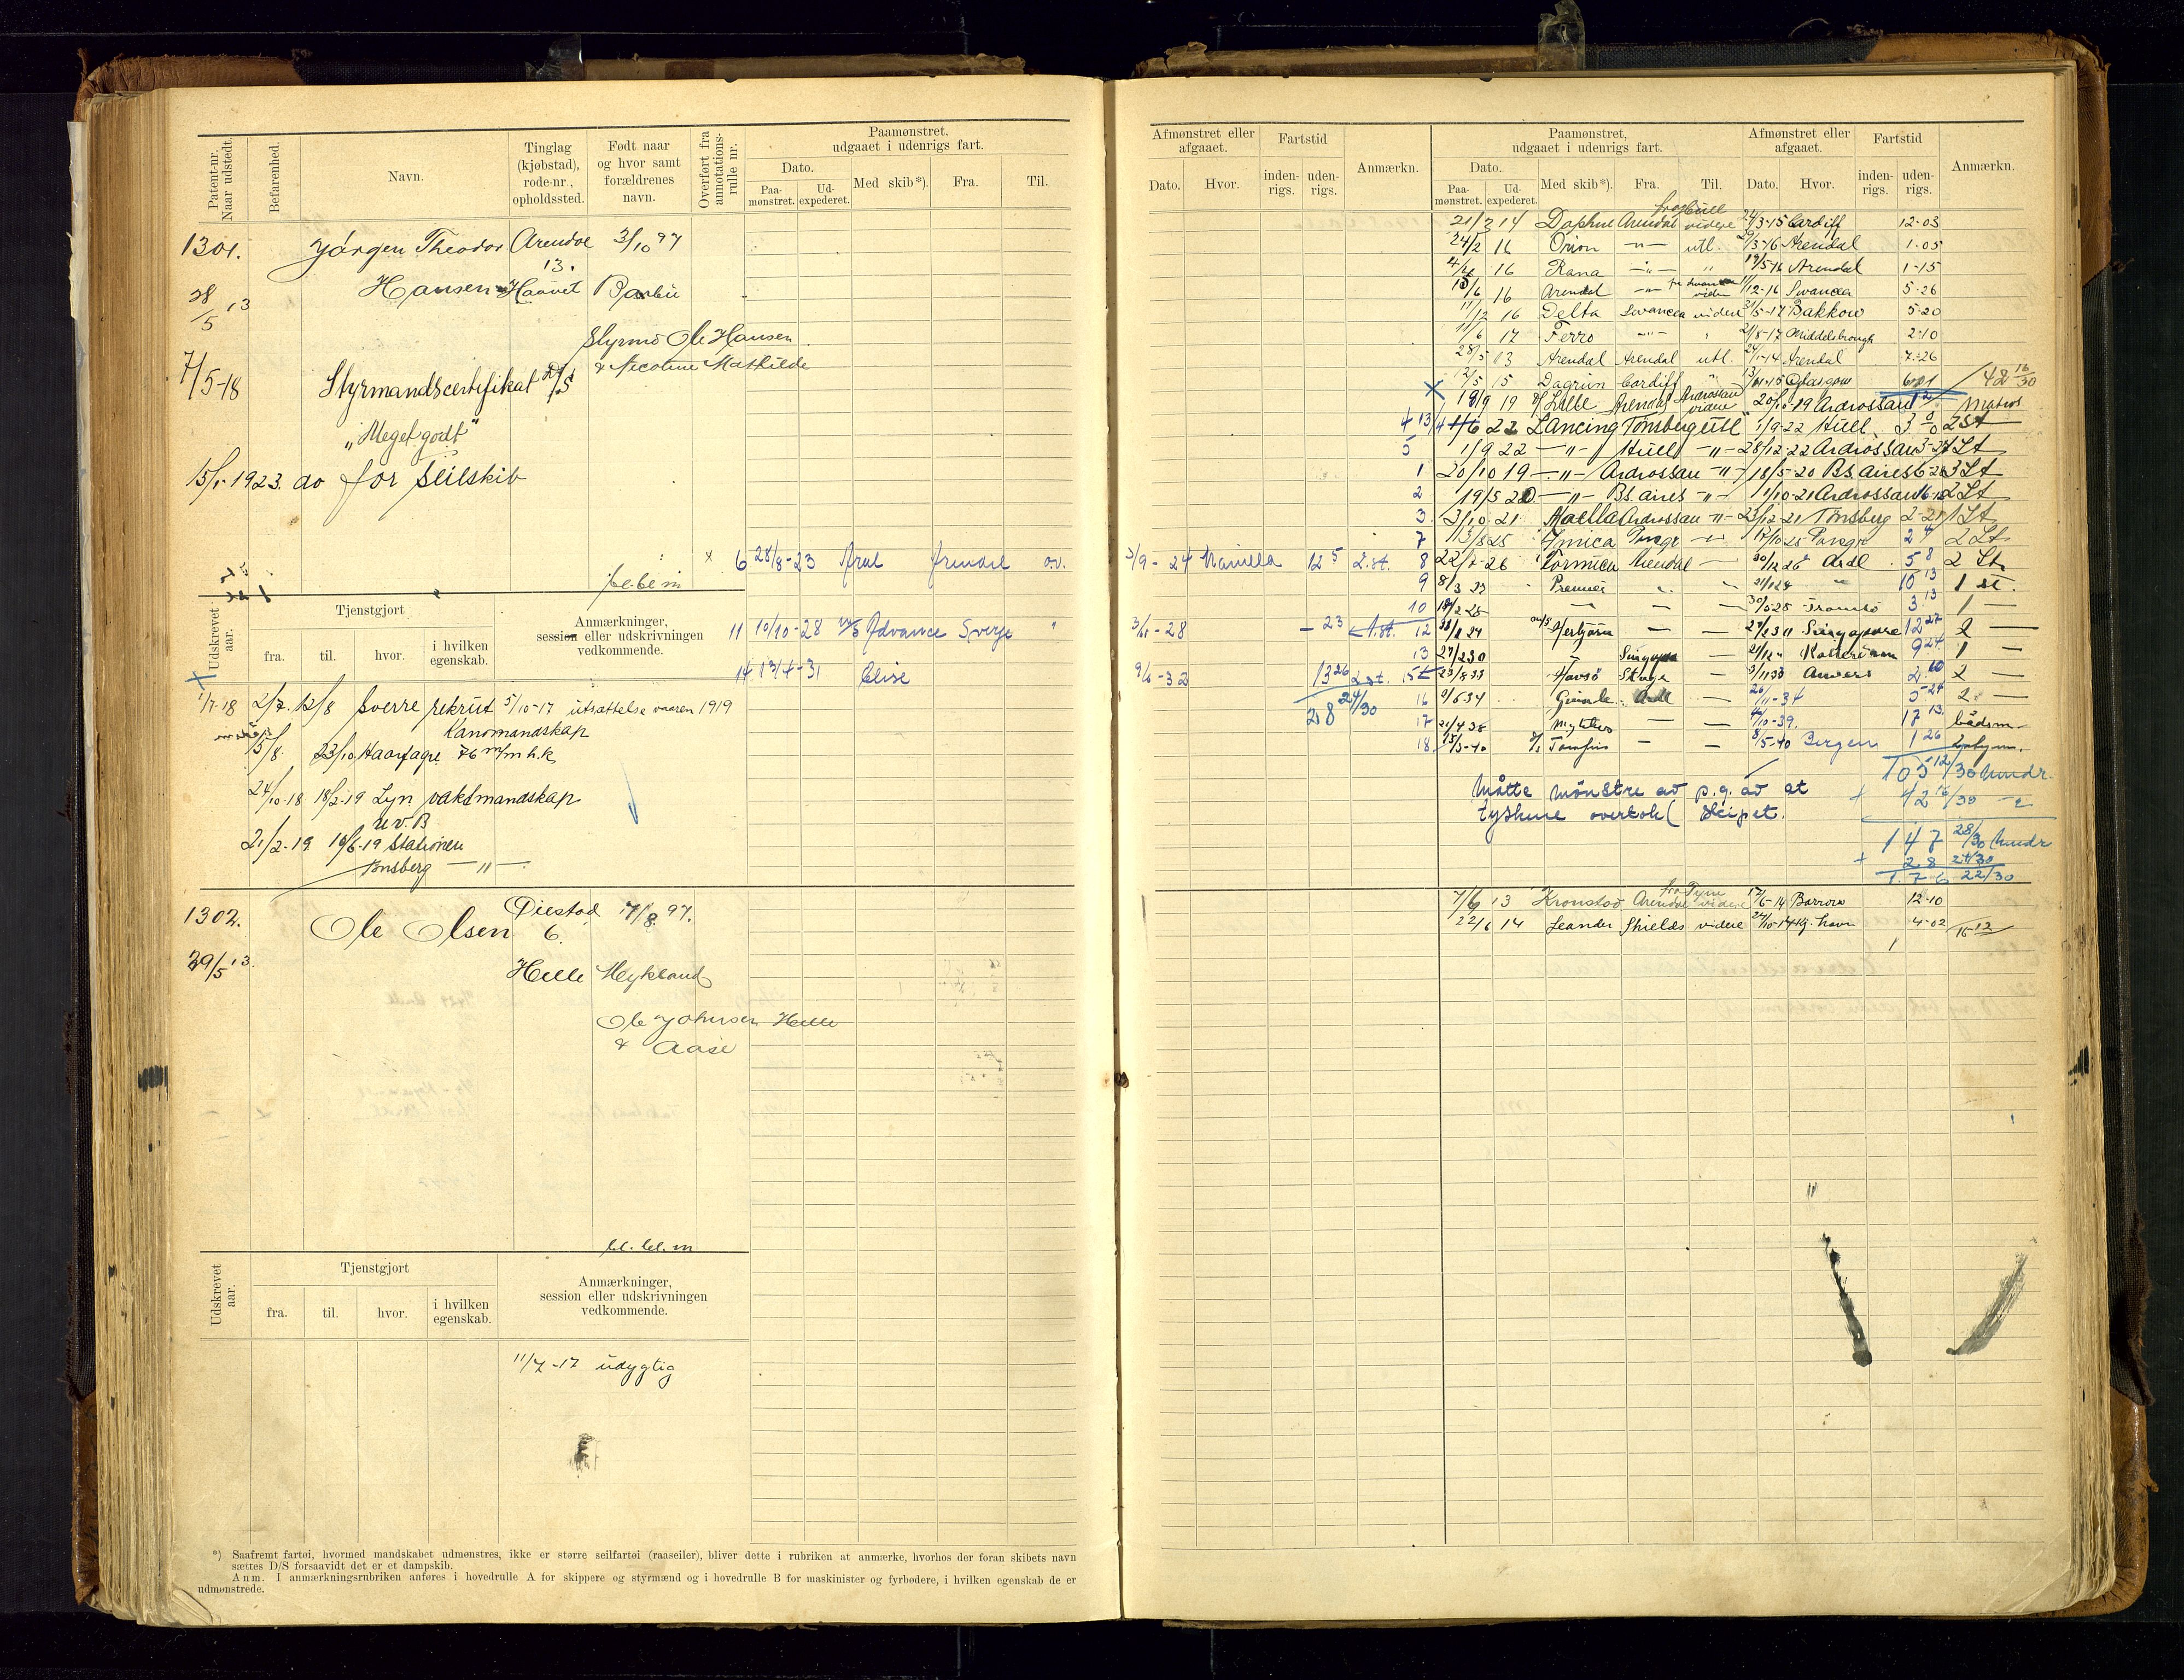 Patent-nr. Naar udstedt.
Befarenhed.
Navn.
Tinglag (kjøbstad), rode-nr., opholdssted.
Født naar og hvor samt forældrenes navn.
Overført fra annotations-rulle nr.
Paamønstret, udgaaet i udenrigs fart.
Dato.
Paa-mønstret.
Ud-expederet.
Med skib*).
Fra.
Til.
1301. Jørgen Theodor Arendal 3/10 97
13.
Hansen Haavet Barbu
28/5 13
Styrmd Ole Hansen
& Nicoline Mathilde
7/5-18 Styrmandscertifikat D/S
"Meget godt"
15/1-1923. do for seilskib
x 6 28/8-23 Aral Arendal u.v.
bl.bl.m
Udskrevet aar.
Tjenstgjort
fra. til. hvor. i hvilken egenskab.
Anmærkninger, session eller udskrivningen vedkommende.
11 10/10-28 M/S Advance Sverge "
14 13/4-31 Elise
17-18 2/7. 12/8 Sverre rekrut 5/10-17 utsættelse vaaren 1919
Kanonmandskap
13/8. 23/10 Haarfagre 76 m/m h.k.
24/10-18 18/2-19 Lyn vaktmandskap
u.v.B
21/2-19 10/6-19 Stationen
Tønsberg — " —
1302. Ole Olsen Øiestad 7/8 97.
6.
29/5 13. Helle Mykland
Ole Johnsen Helle
& Aase
bl. bl. m
Udskrevet aar.
Tjenstgjort
fra. til. hvor. i hvilken egenskab.
Anmærkninger, session eller udskrivningen vedkommende.
11/7-17 udygtig
*) Saafremt fartøi, hvormed mandskabet udmønstres, ikke er større seilfartøi (raaseiler), bliver dette i rubriken at anmærke, hvorhos der foran skibets navn
sættes D/S forsaavidt det er et dampskib.
Anm. I anmærkningsrubriken anføres i hovedrulle A for skippere og styrmænd og i hovedrulle B for maskinister og fyrbødere, i hvilken egenskab de er
udmønstrede.
Afmønstret eller afgaaet.
Dato. Hvor.
Fartstid
inden-rigs. uden-rigs.
Anmærkn.
Paamønstret, udgaaet i udenrigs fart.
Dato.
Paa-mønstret. Ud-expederet.
Med skib*). Fra. Til.
Afmønstret eller afgaaet.
Dato. Hvor.
Fartstid
inden-rigs. uden-rigs.
Anmærkn.
fra Hull
21/2 14 Daphne Arendal videre 24/3-15 Cardiff 12-03
24/2 16 Orion — " — utl. 29/3-16 Arendal 1-05
4/4 16 Rana — " — " 19/5-16 Arendal 1-15
15/6 16 Arendal — " — fra Swansea videre 11/12-16 Swansea 5-26
11/12 16 Delta Swansea videre 31/5-17 Bakkow 5-20
11/6 17 Ferro — " — 21/8-17 Middelsbrough 2-10
28/5 13 Arendal Arendal utl. 24/1-14 Arendal 7-26
12/5 15 Dagrun Cardiff " 13/11-15 Glasgow 6-01 42 16/30
X 18/9 19 Arendal Ardrossan videre 20/10-19 Ardrossan 1 2 Matros
4 22 Lancing Tønsberg utl " 1/9-22 Hull 3 2 St
5 1/9 22 — " — Hull — " — 28/12-22 Ardrossan 3-27 1 St
1 20/10 19 — " — Ardrossan — " — 18/5-20 Bs. aires 6-28 3 St
2 19/5 20 — " — Bs. aires — " — 1/10-21 Ardrossan 16-12 2 St
3 3/10 21 Maella Ardrossan — " — 23/12-21 Tønsberg 2-21 1 St
7 13/8 25 Porsgr — " — 17/10 25 Porsgr 2 4 2 St.
3/9-24 Manilla 12 5 2. st. 8 22/7-26 Formica Arendal — 30/12 26 Ardl 5 8 2 St.
9 8/3 27 Premier " — 10 13 1 st.
10 — — 30/5-28 Tromsø 3 13 1 —
3/11-28 — 23 1. st. 12 — 27/2 30 Singapore 12 27 2 —
13 27/2 30 — Singapore — 9 24 1 —
9/6-32 13 26 2. st. 15 23/8 33 Havsø — 3/11 33 Anvers 2 10 2 —
28 24/30 16 9/6 34 Ardl — 26/11-34 5 24 2. —
17 21/4 38 — — 10-39. 17 13 båtsm.
18 15/3-40 — — 8/5-40 Bergen 1 26
105 12/30 mndr.
Måtte mønstre av p.g. av at + 42 16/30
tyskerne overtok skipet.
147 28/30 mndr
+ 28 24/30
176 22/30
fra Tyne
7/6 13 Kronstad Arendal videre 17/6-14 Barrow 12-10
22/6 14 Leander Shields videre 24/10-14 Kj. havn 4-02 16 12
1